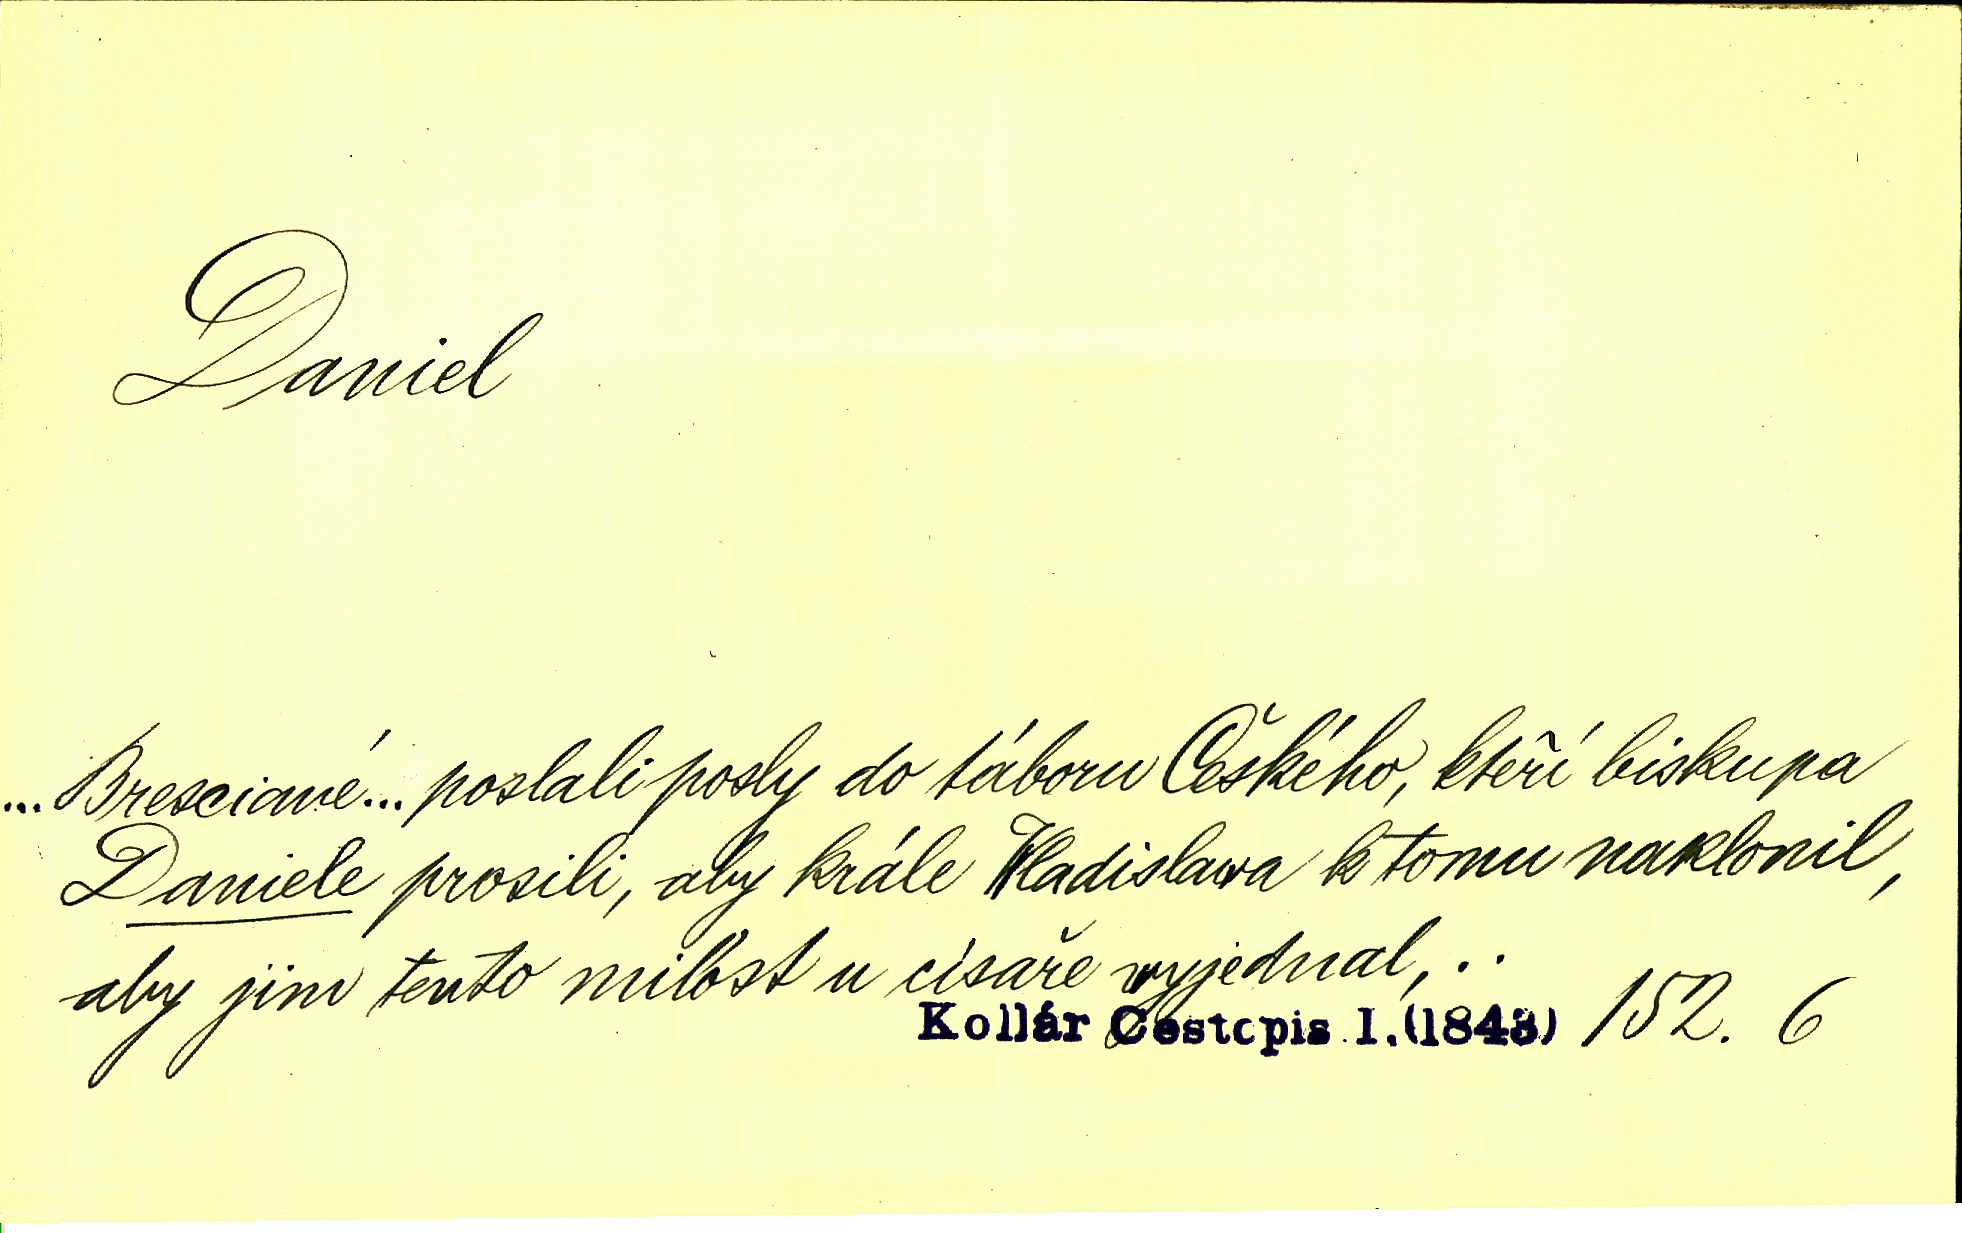 Daniel
... Bresciané... poslali posly do táboru Českého, kteří biskupa
Daniele prosili, aby krále Wladislawa k tomu naklonil,
aby jim tento milost u císaře wyjednal,..
Kollár Cestopis I.(1843) 152. 6